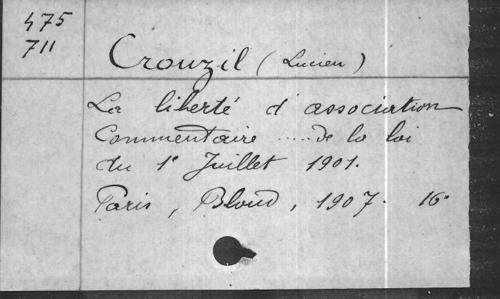 475
711
Crouzil (Lucien)
La liberté d'association
Commentaire ..... de la loi
du 1e Juillet 1901.
Paris, Bloud, 1907. 16o